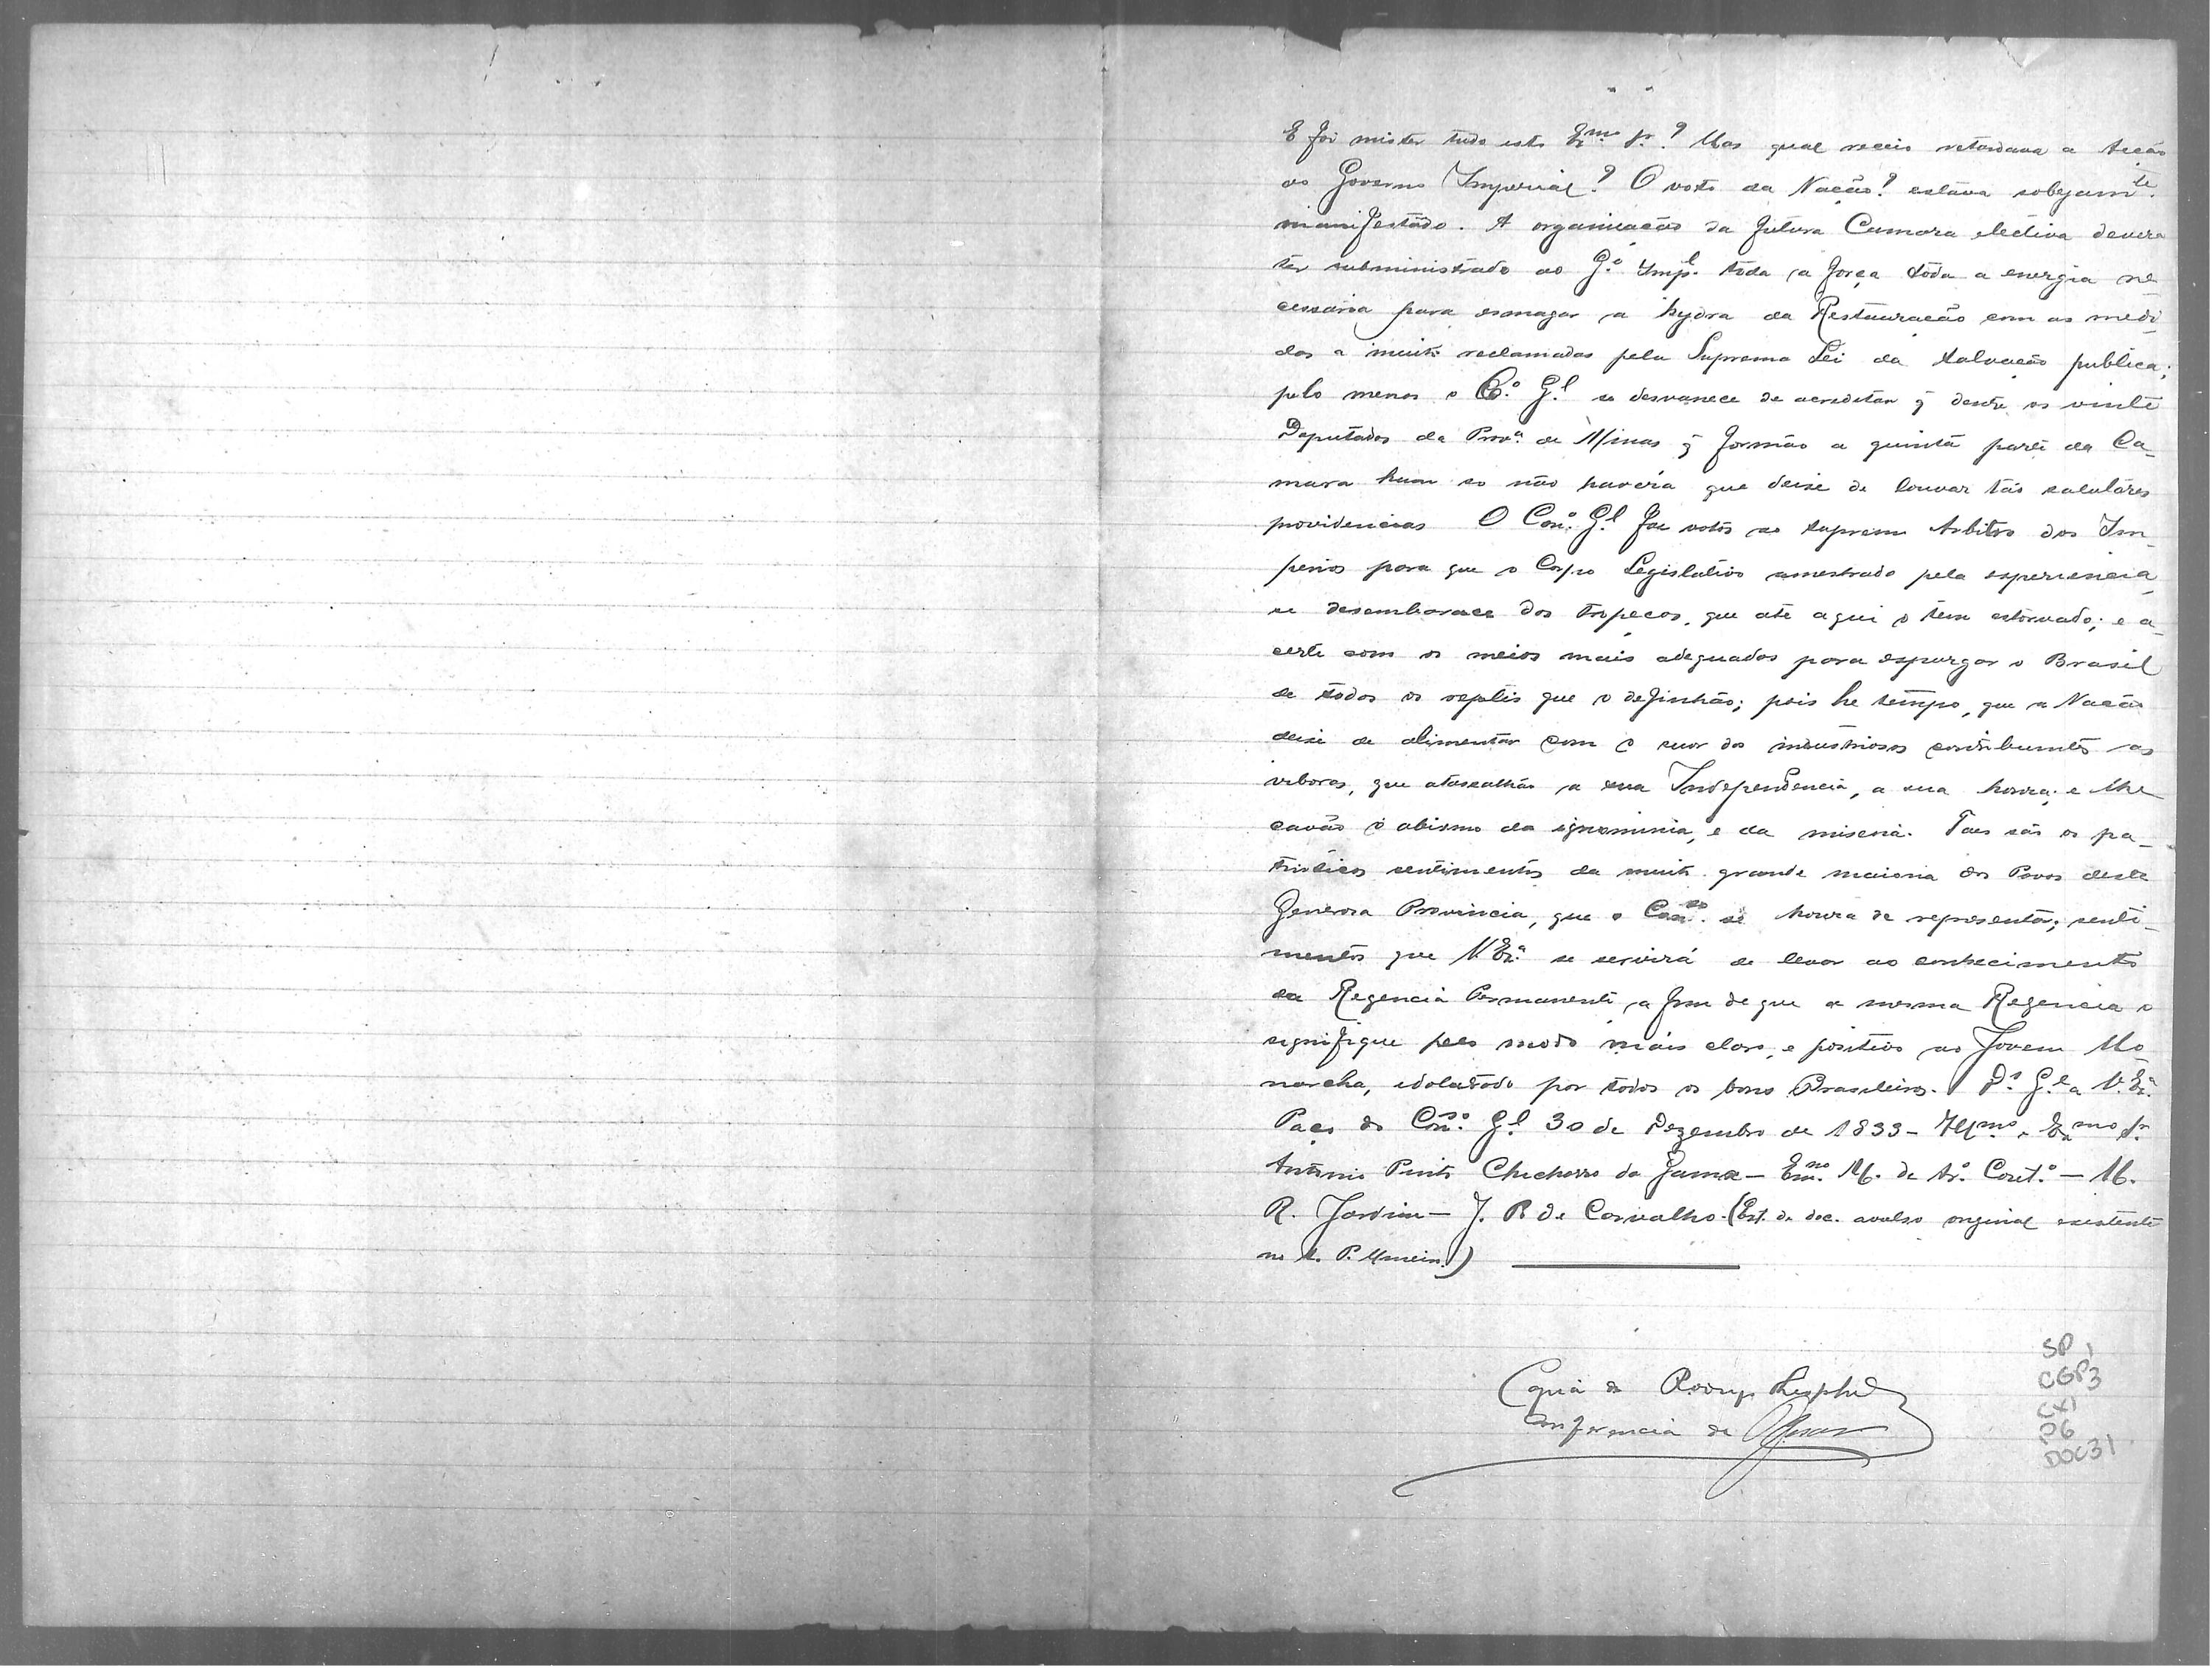 E foi mister tudo isto Exmo Sr.? Mas qual receio retardava a Acção
do Governo Imperial? O voto da Nação? estava sobejamte.
manifestado. A organisação da futura Camara electiva devera
ter subministrado ao G.º Impl. toda a força toda a energia ne
cessaria para esmagar a hydra da Restauração com as medi
das a muito reclamadas pela Suprema Lei da salvação publica;
pelo menos o C.º G.l se desvanece de acreditar q̃ dentre os vinte
Deputados da Prov.a de Minas q̃ formão a quinta parte da Ca_
mara hum so não haverá que deixe de louvar tão salutares
providencias O Con.º G.l faz votos ao Supremo Arbitro dos Im_
perios para que o Corpo Legislativo amestrado pela experiencia,
se desembarace dos tropeços, que até aqui o tem estorvado; e a_
certe com os meios mais adequados para expurgar o Brasil
de todos os reptis que o definhão; pois he tempo, que a Nação
deixe de alimentar com o suor dos industriosos contribuintes as
viboras, que atassalhão a sua Independencia, a sua honra; e lhe
cavão o abismo da ignominia, e da miseria. Taes são os pa_
trioticos sentimentos da muito grande maioria dos Povos desta
generosa Provincia, que o Conso. se honra de representar; senti_
mentos que V. Ex.a se servirá de levar ao conhecimento
da Regencia Permanente, a fim de que a mesma Regencia o
signifique pelo modo mais claro, e positivo ao Jovem Mo
narcha, idolatrado por todos os bons Brasileiros. D.s G.e a V. Ex.a
Paço do Conso. G.l 30 de Dezembro de 1833 - Illmo. Exmo. Sr.
Antonio Pinto Chichorro da Gama - M. de
R. Jardim - J. B de Carvalho. (Ext. do doc. avulso original existente
no A. P. Mineiro.)
Copia de Rodrigo
Conferencia de
SP 1
CGP3
CX1
P6
DOC31